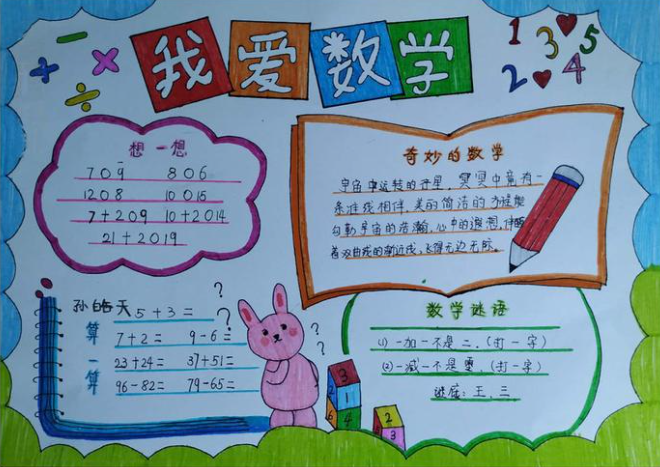 我爱数学
1 3 5
2 4
想一想
709 806
1208 10016
7+209 10+2014
21+2019
奇妙的数学
宇宙中运转的行星,冥冥中竟有一
条准线相伴,美的简洁的方程能
勾勒宇宙的浩瀚,心中的遐想,伴随
着双曲线的渐近线,飞得无边无际。
孙皓天 5+3=
算一算
7+2= 9-6=
23+24= 37+51=
96-82= 79-65=
? ?
? ?
数学谜语
(1)一加一不是二,(打一字)
(2)一减一不是零,(打一字)
谜底:王、三
3
1
6 4
2
3